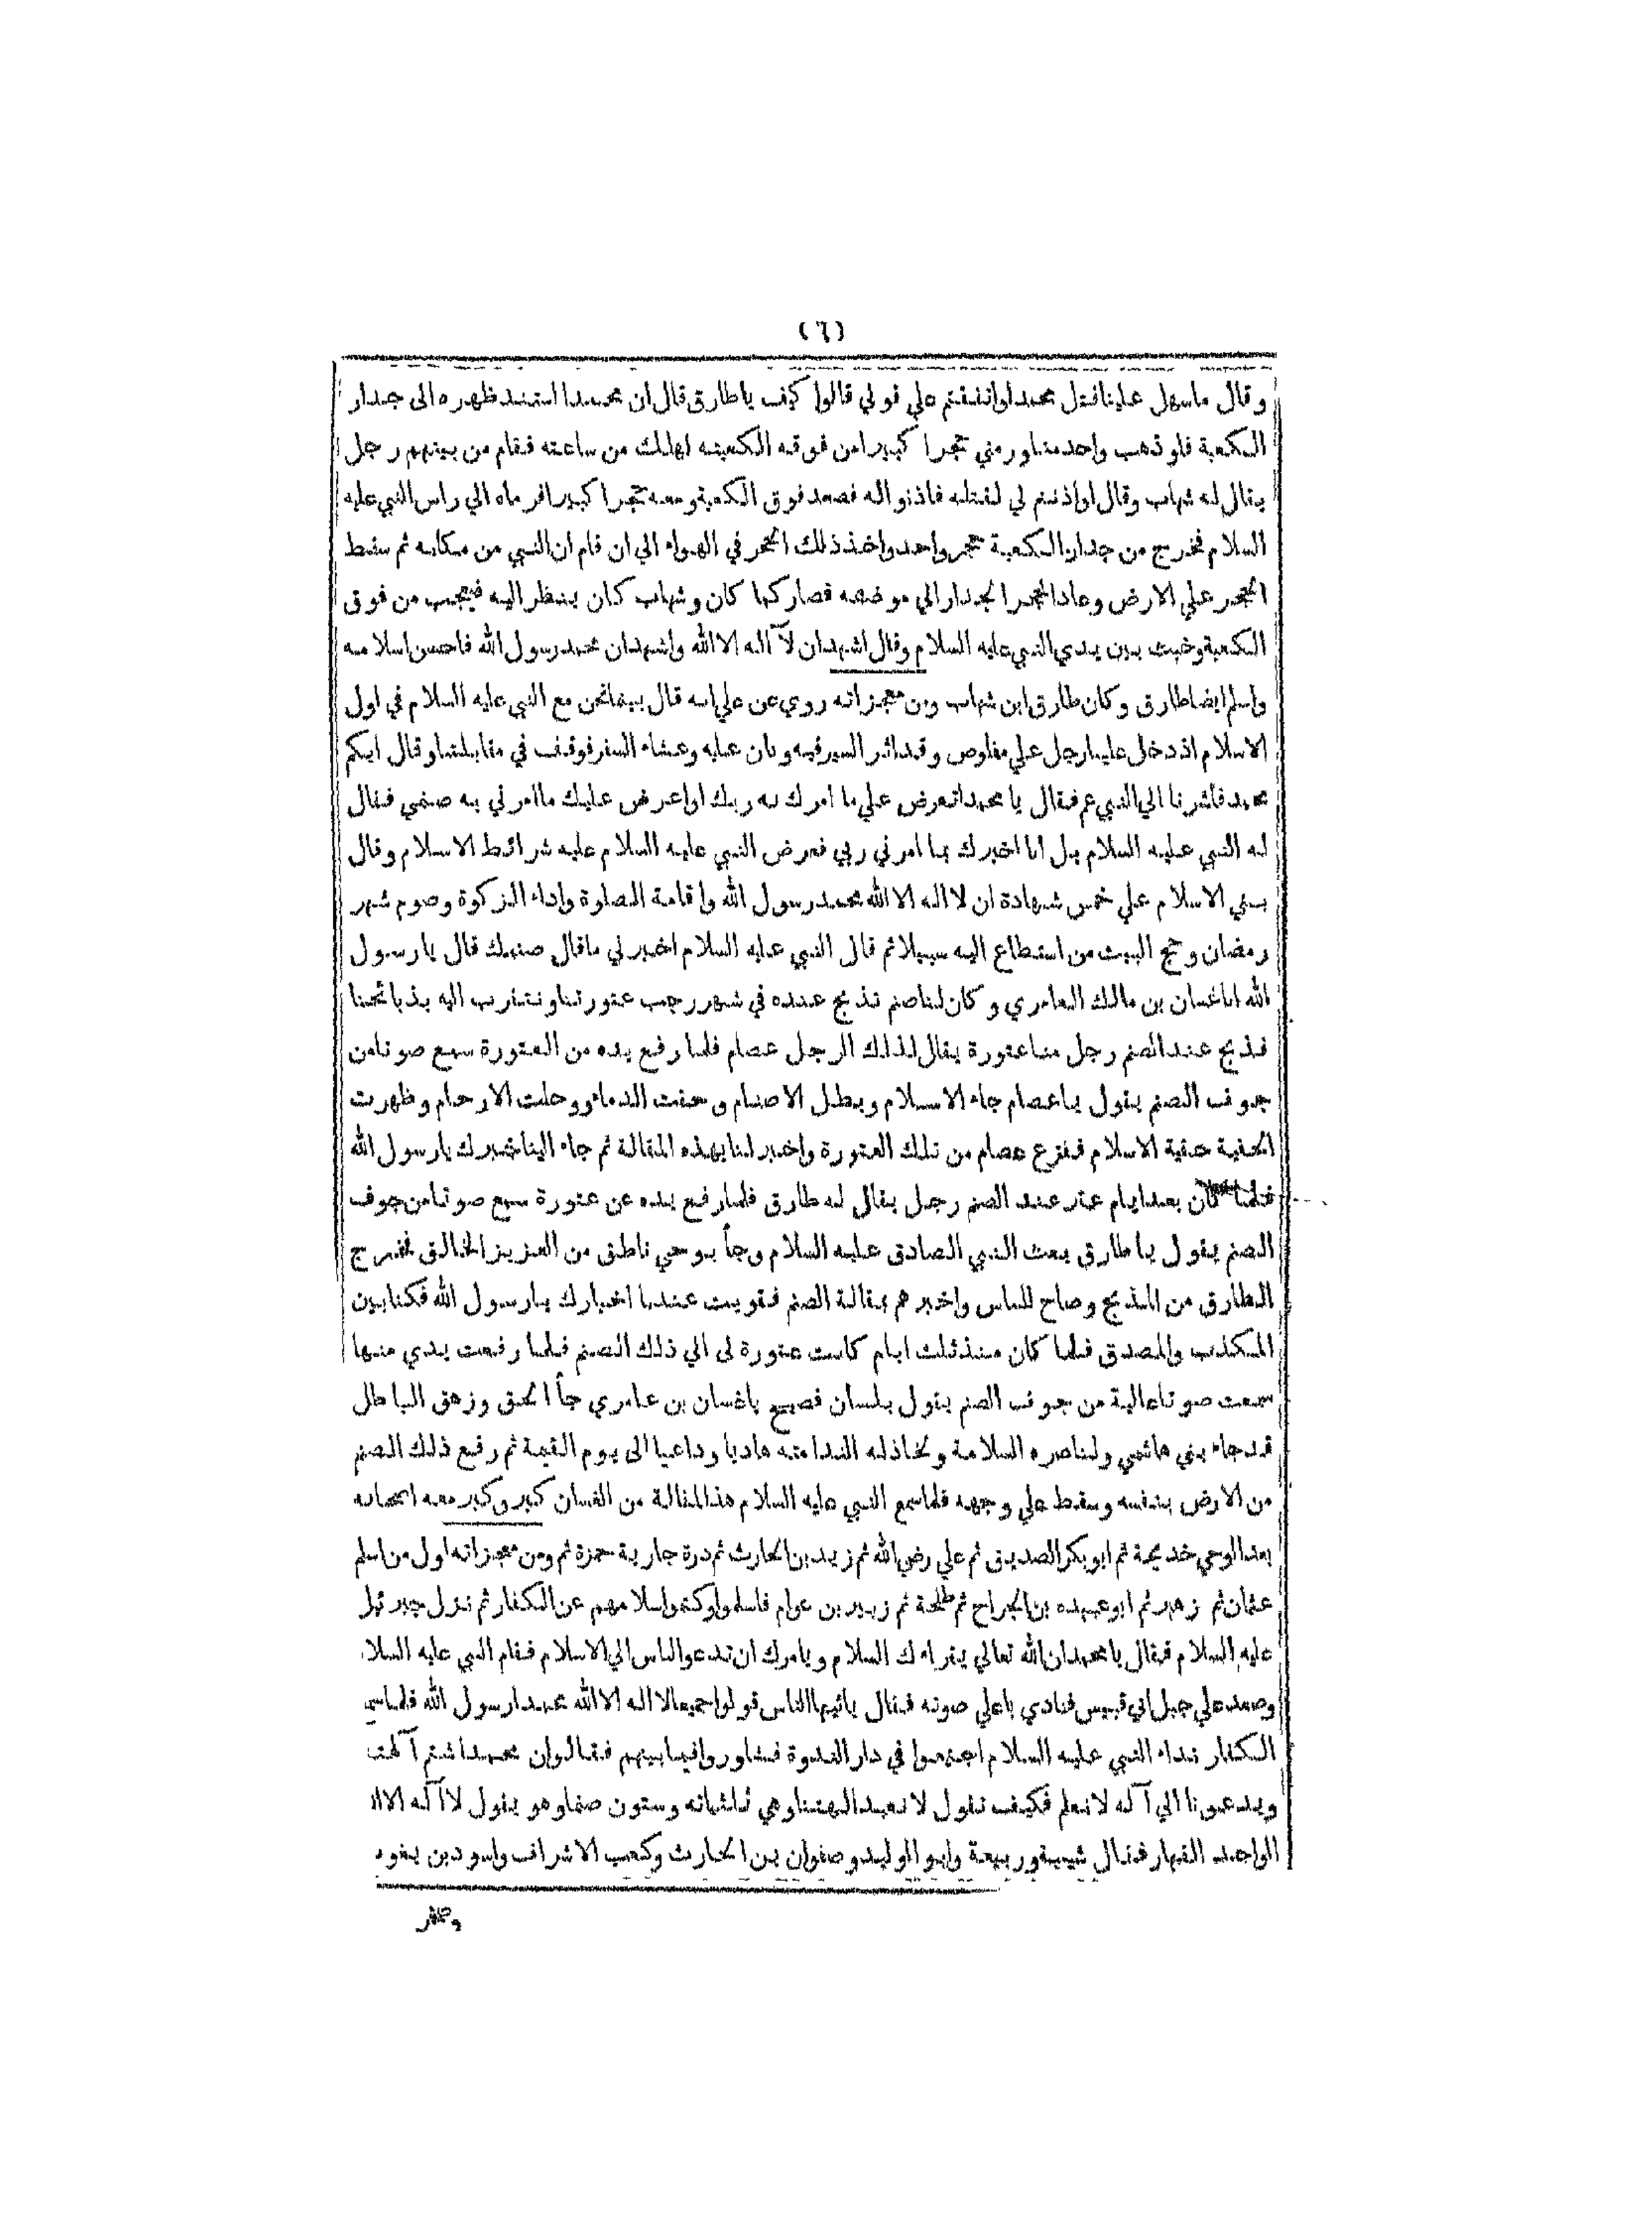 (٦)
وقال ماسهل علينا قتل محمد لو اتفقتم علي قولي قالوا كيف ياطارق قال ان محمدا استند ظهره الى جدار
الكعبة فلو ذهب واحد منا ورمني حجرا كبيرا من فوقه الكعبة لهلك من ساعته فقام من بينهم رجل
يقال له شهاب وقال لو اذنتم لي لقتلته فاذنوا له فصعد فوق الكعبة ومعه حجرا كبيرا فرماه الي راس النبي عليه
السلام فخرج من جدار الكعبة حجر واحد واخذ ذلك الحجر في الهواء الي ان قام ان النبي من مكانه ثم سقط
الحجر علي الارض وعاد الحجر الجدار الي موضعه فصار كما كان وشهاب كان ينظر اليه فيعجب من فوق
الكعبة وخبث بين يدي النبي عليه السلام وقال اشهد ان لآ اله الا الله واشهد ان محمد رسول الله فاحسن اسلامه
واسلم ايضا طارق وكان طارق ابن شهاب ومن معجزاته روي عن علي انه قال بينما نحن مع النبي عليه السلام في اول
الاسلام اذ دخل علينا رجل علي قلوص وقد اثر السير فيه وبان عليه وعشاء السفر فوقف في مقابلتنا وقال ايكم
محمد فاشرنا الي النبي عم فقال يا محمد اتعرض علي ما امرك به ربك او اعرض عليك ما امرني به صنمي فقال
له النبي عليه السلام بل انا اخبرك بما امرني ربي فعرض النبي عليه السلام عليه شرائط الاسلام وقال
بني الاسلام علي خمس شهادة ان لا اله الا الله محمد رسول الله واقامة الصلوة واداء الزكوة وصوم شهر
رمضان وحج البيت من استطاع اليه سبيلا ثم قال النبي عليه السلام اخبرلي ماقال صنمك قال يارسول
الله انا غسان بن مالك العامري وكان لنا صنم نذبح عنده في شهر رجب عتورتنا ونتقارب اليه بذبائحنا
فذبح عند الصنم رجل منا عتورة يقال لذلك الرجل عصام فلما رفع يده من العتورة سمع صوتا من
جوف الصنم يقول ياعصام جاء الاسلام وبطل الاصنام وحقنت الدماء ووحلت الارحام وظهرت
الحفية حقية الاسلام ففزع عصام من تلك العتورة واخبر لنا بهذه المقالة ثم جاء الينا خبرك يارسول الله
فلما كان بعد ايام عتر عند الصنم رجل يقال له طارق فلما رفع يده عن عتورة سمع صوتا من جوف
الصنم يقول يا طارق بعث النبي الصادق عليه السلام وجأ بوحي ناطق من العزيز الخالق فخرج
الطارق من المذبح وصاح للناس واخبرهم بمقالة الصنم فقويت عندنا اخبارك يارسول الله فكنا بين
المكذب والمصدق فلما كان منذ ثلث ايام كانت عتورة لى الي ذلك الصنم فلما رفعت يدي منها
سمعت صوتا عالية من جوف الصنم يقول بلسان فصيح ياغسان بن عامري جأ الحق وزهق الباطل
قد جاء بني هاشمي ولناصره السلامة ولخاذله الندامته هاديا وداعيا الى يوم القيمة ثم رفع ذلك الصنم
من الارض بنفسه وسقط علي وجهه فلما سمع النبي عليه السلام هذا المقالة من الغسان كبر وكبر معه اصحابه
بعد الوحي خديجة ثم ابو بكر الصديق ثم علي رضي الله ثم زيد بن الحارث ثم درة جارية حمزة ثم ومن معجزاته اول من اسلم
عثمان ثم زهير ثم ابو عبيده بن الجراح ثم طلحة ثم زبير بن عوام فاسلموا وكتموا اسلامهم عن الكفار ثم نزل جبرئيل
عليه السلام فقال يا محمد ان الله تعالي يقراءك السلام ويامرك ان تدعو الناس الي الاسلام فقام النبي عليه السلا
وصعد علي جبل ابي قبيس فنادي باعلي صوته فقال يائيها الناس قولوا جميعا لا اله الا الله محمدا رسول الله فلما سم
الكفار نداء النبي عليه السلام اجتمعوا في دار الندوة فتشاوروا فيما بينهم فقالوا ان محمدا شتم آلهت
ويدعونا الي آله لانعلم فكيف نقول لا نعبد الهتنا وهي ثلثمائه وستون صنما وهو يقول لا آله الا ال
الواحد القهار فقال شيبة وربيعة وابو الوليد وصفوان بن الحارث وكعب الاشراف واسود بن يغو
وصخر